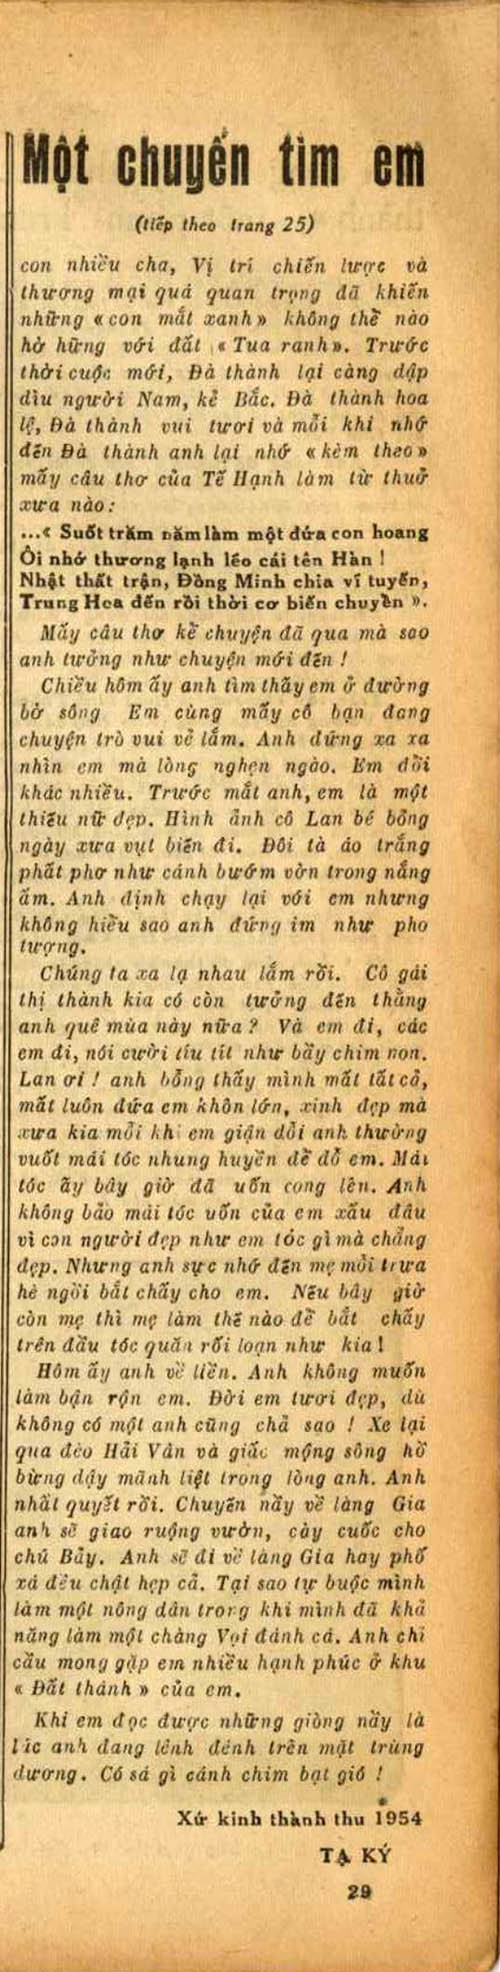 Một chuyến tìm em
(tiếp theo trang 25)
con nhiều cha, Vị trí chiến lược và
thương mại quá quan trọng đã khiến
những «con mắt xanh» không thể nào
hờ hững với đất «Tua ranh». Trước
thời cuộc mới, Đà thành lại càng dập
dìu người Nam, kẻ Bắc. Đà thành hoa
lệ, Đà thành vui tươi và mỗi khi nhớ
đến Đà thành anh lại nhớ «kèm theo»
mấy câu thơ của Tế Hạnh làm từ thuở
xưa nào:
...« Suốt trăm năm làm một đứa con hoang
Ôi nhớ thương lạnh lẽo cái tên Hàn !
Nhật thất trận, Đồng Minh chia vĩ tuyến,
Trung Hoa đến rồi thời cơ biến chuyển ».
Mấy câu thơ kể chuyện đã qua mà sao
anh tưởng như chuyện mới đến !
Chiều hôm ấy anh tìm thấy em ở đường
bờ sông Em cùng mấy cô bạn đang
chuyện trò vui vẻ lắm. Anh đứng xa xa
nhìn em mà lòng nghẹn ngào. Em đổi
khác nhiều. Trước mắt anh, em là một
thiếu nữ đẹp. Hình ảnh cô Lan bé bỏng
ngày xưa vụt biến đi. Đôi tà áo trắng
phất phơ như cánh bướm vờn trong nắng
ấm. Anh định chạy lại với em nhưng
không hiểu sao anh đứng im như pho
tượng.
Chúng ta xa lạ nhau lắm rồi. Cô gái
thị thành kia có còn tưởng đến thằng
anh quê mùa này nữa ? Và em đi, các
em đi, nói cười tíu tít như bầy chim non.
Lan ơi ! anh bỗng thấy mình mất tất cả,
mất luôn đứa em khôn lớn, xinh đẹp mà
xưa kia mỗi khi em giận dỗi anh thường
vuốt mái tóc nhung huyền để dỗ em. Mái
tóc ấy bây giờ đã uốn cong lên. Anh
không bảo mái tóc uốn của em xấu đâu
vì con người đẹp như em tóc gì mà chẳng
đẹp. Nhưng anh sực nhớ đến mẹ mỗi trưa
hè ngồi bắt chấy cho em. Nếu bây giờ
còn mẹ thì mẹ làm thế nào để bắt chấy
trên đầu tóc quăn rối loạn như kia !
Hôm ấy anh về liền. Anh không muốn
làm bận rộn em. Đời em tươi đẹp, dù
không có một anh cũng chả sao ! Xe lại
qua đèo Hải Vân và giấc mộng sông hồ
bừng dậy mãnh liệt trong lòng anh. Anh
nhất quyết rồi. Chuyến nầy về làng Gia
anh sẽ giao ruộng vườn, cày cuốc cho
chú Bảy. Anh sẽ đi về làng Gia hay phố
xá đều chật hẹp cả. Tại sao tự buộc mình
làm một nông dân trong khi mình đã khả
năng làm một chàng Vọi đánh cá. Anh chỉ
cầu mong gặp em nhiều hạnh phúc ở khu
« Đất thánh » của em.
Khi em đọc được những giòng nầy là
lúc anh đang lênh đênh trên mặt trùng
dương. Có sá gì cánh chim bạt gió !
Xứ kinh thành thu 1954
TẠ KÝ
29